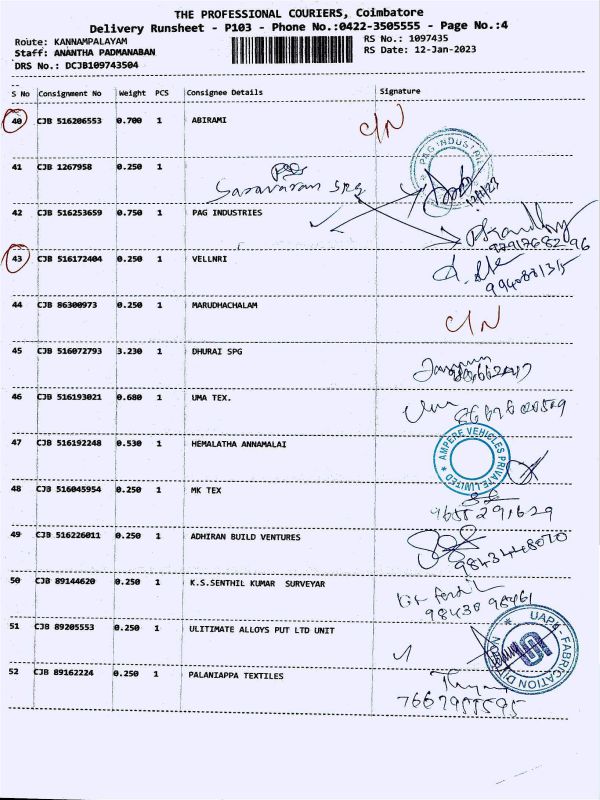 THE PROFESSIONAL COURIERS, Coimbatore
Delivery Runsheet - P103 - Phone No.:0422-3505555 - Page No.:4
Route: KANNAMPALAYAM RS No.: 1097435
Staff: ANANTHA PADMANABAN RS Date: 12-Jan-2023
DRS No.: DCJB109743504
S No Consignment No Weight PCS Consignee Details Signature
40 CJB 516206553 0.700 1 ABIRAMI C/N
PAG INDUSTRIE
41 CJB 1267958 0.250 1
Saravanan SPG 12/1/23
42 CJB 516253659 0.750 1 PAG INDUSTRIES
43 CJB 516172404 0.250 1 VELLNRI
44 CJB 86300973 0.250 1 MARUDHACHALAM C/N
45 CJB 516072793 3.230 1 DHURAI SPG
46 CJB 516193021 0.680 1 UMA TEX.
47 CJB 516192248 0.530 1 HEMALATHA ANNAMALAI
AMPERE VEHICLES PRIVATE LIMITED
48 CJB 516045954 0.250 1 MK TEX
9655291629
49 CJB 516226011 0.250 1 ADHIRAN BUILD VENTURES
9843448070
50 CJB 89144620 0.250 1 K.S.SENTHIL KUMAR SURVEYAR
98430 98461
51 CJB 89205553 0.250 1 ULITIMATE ALLOYS PUT LTD UNIT
UAPL - FABRICATION DIVISION
52 CJB 89162224 0.250 1 PALANIAPPA TEXTILES